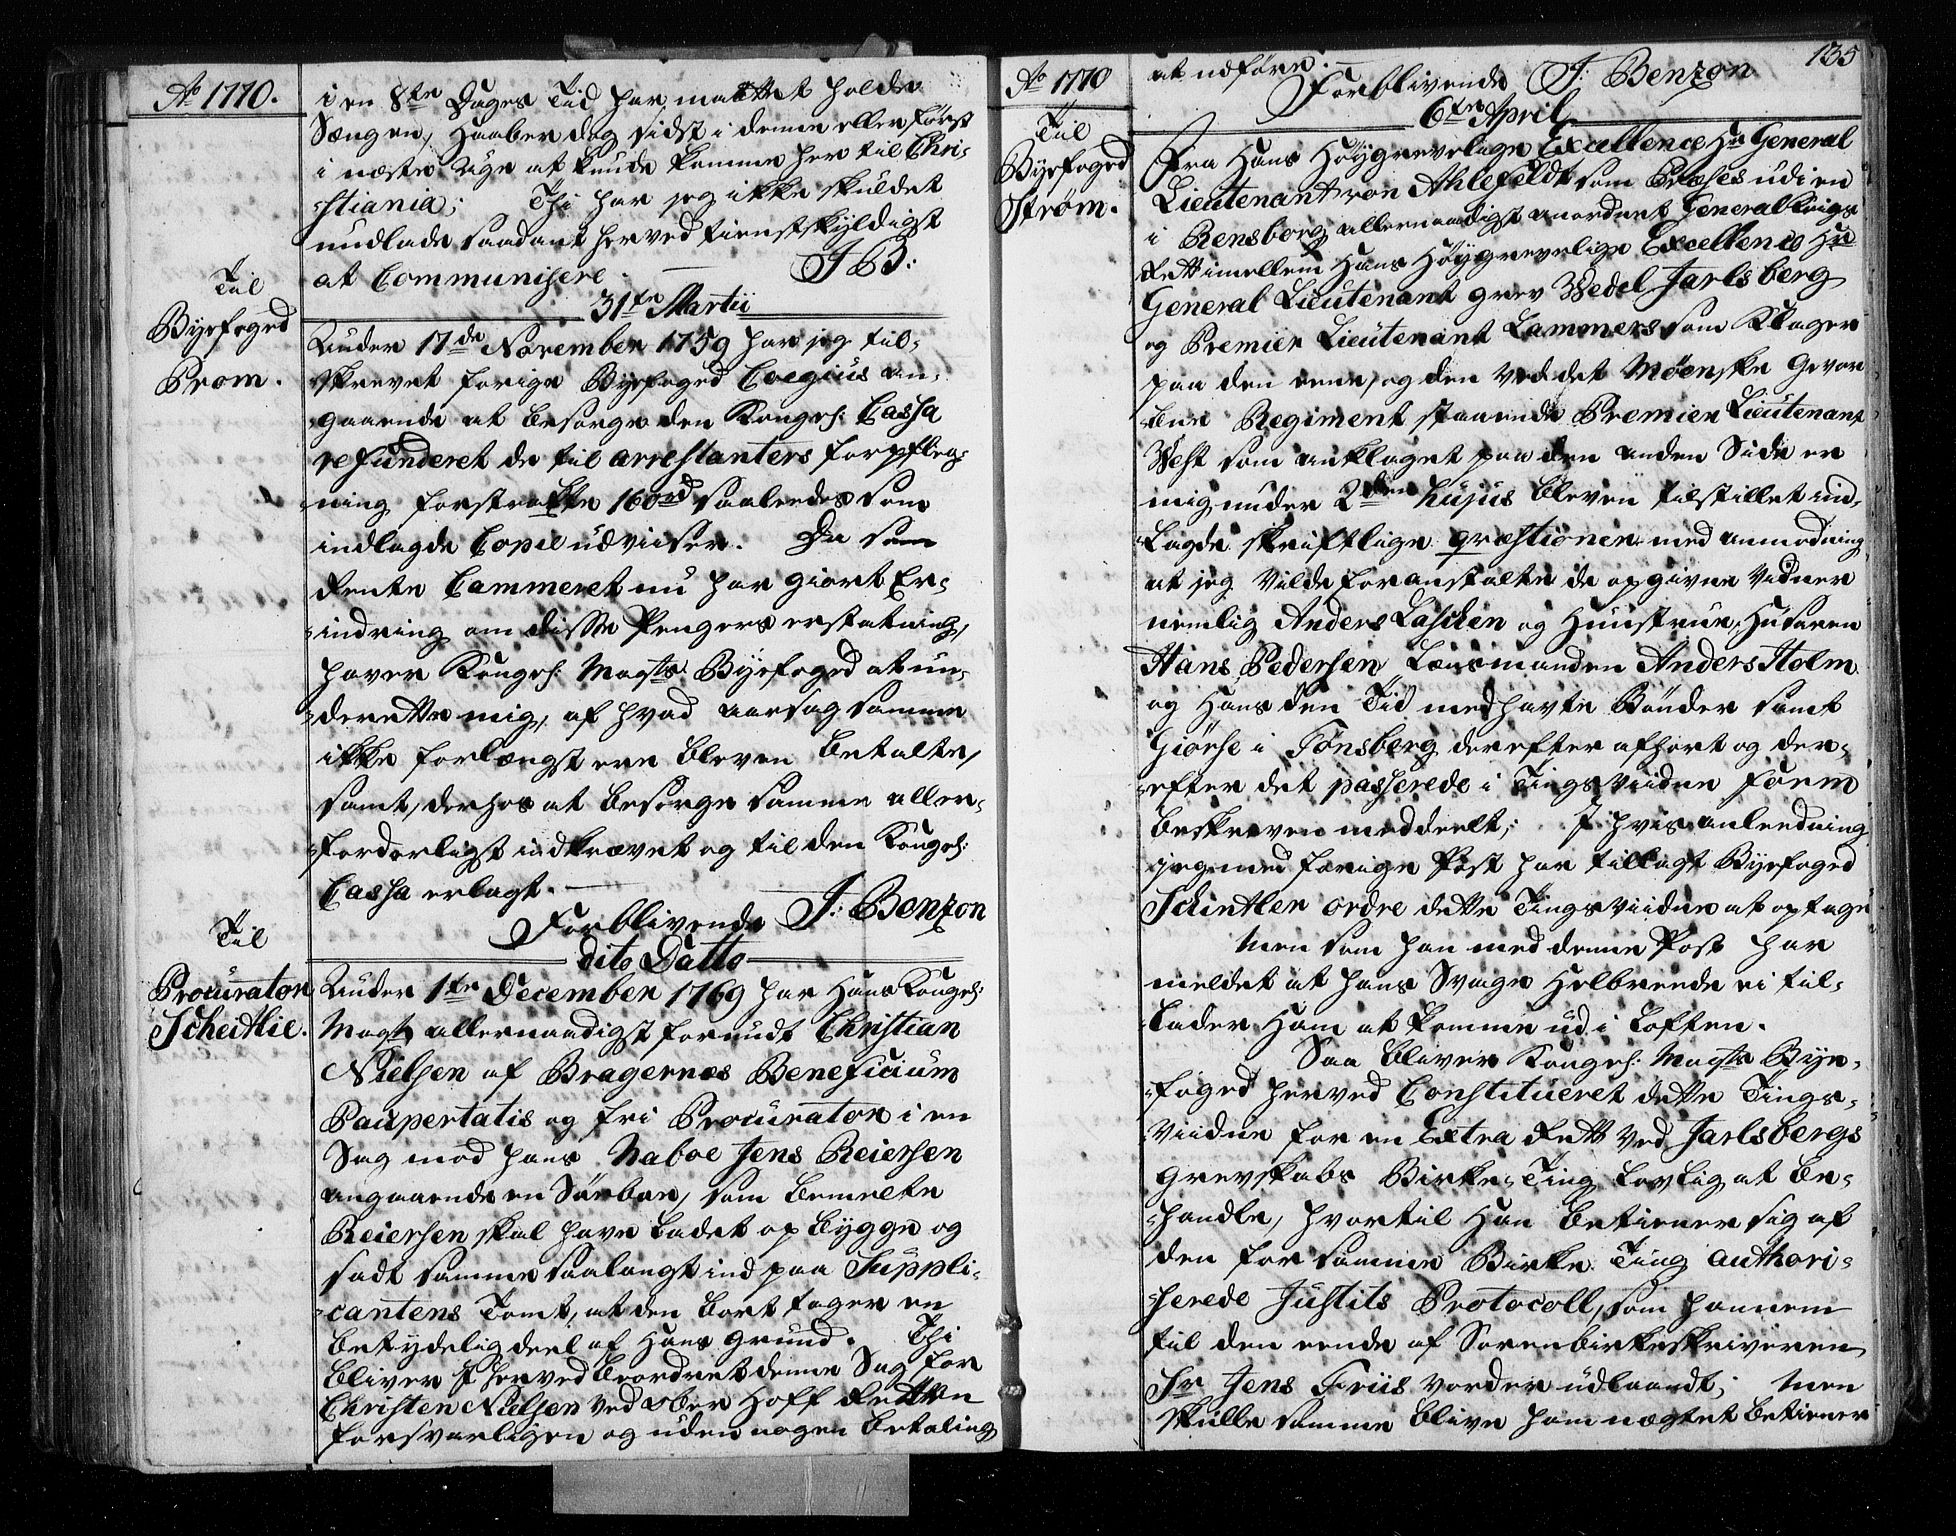 Ao 1770.
i en 8te Dages Tid har maattet holde
Sengen, haaber dog sidst i denne eller først
i næste Uge at kunde komme her til Chri-
stiania; Thi har jeg ikke skuldet
undlade saadant herved tienstskyldigst
at Communisere. J B:
31te Martii
Til
Byefoged
Prom.
Under 17de November 1759 har jeg til-
skrevet forige Byefoged Coegius an-
gaaende at besørge den Kongel: Cassa
refunderet de til arrestanters forpfleg-
ning forstrakte 160rd saaledes som
indlagde Copie udviiser. Da som
Rente Cammeret nu har giort Er-
indring om disse Penges erstatning,
haver Kongel: Maysts Byefoged at un-
derrette mig, af hvad aarsag samme
ikke forlængst ere bleven betalte,
samt, derhos at besørge samme aller-
forderligst indkrævet og til den Kongel:
Cassa erlagt.
Forblivende J: Benzon
dito Datto
Til
Procurator
Scheitlie.
Under 1te December 1769 har Hans Kongel:
Mayst allernaadigst forundt Christian
Nielsen af Bragernæs Beneficium
Paupertatis og fri Procurator i en
Sag mod hans Naboe Jens Reiersen
angaaende en Søeboe, som bemelte
Reiersen skal have ladet op bygge og
sadt samme saalangt ind paa Suppli-
cantens Tomt, at den bort tager en
betydelig deel af Hans grund. Thi
bliver I herved beordret denne Sag for
Christen Nielsen ved ober Hoff Retten
forsvarligen og uden nogen betaling
135
Ao 1770
at udføre.
Forblivende J: Benzon
6te April
Til
Byefoged
Strøm.
Fra Hans Høygrevelige Excellence Hr General
Lieutenant von Ahlefeldt som Præses udi en
i Rensborg allernaadigst anordnet General krigs
Rett imellem Hans Høygrevelige Excellence Hr
General Lieutenant grev Wedel Jarlsberg
og Premier Lieutenant Lammers som Klager
paa den eene, og den ved det Møenske Gevor
bne Regiment staaende Premier Lieutenant
West som anklaget paa den anden Side er
mig under 2den hujus bleven tilstillet ind-
lagde skriftlige qvæstioner med anmodning
at jeg vilde foranstalte de opgivne vidner
nemlig Anders Laschen og Huustrue, Husaren
Hans Pedersen Lænsmanden Anders Holm
og Hans den Tid medhavte Bønder samt
Giørse i Tønsberg derefter afhørt og der-
efter det passerede i Tingsviidne form
beskreven meddeelt; I hvis anleedning
jeg med forige Post har tillagt Byefoged
Schintler ordre dette Tingsviidne at optage
Men som han med denne Post har
meldet at hans Svage Helbreede ei til-
lader Ham at komme ud i Loften.
Saa bliver Kongel: Maysts Bye-
foged herved Constitueret dette Tings-
viidne for en Extra Rett ved Jarlsbergs
grevskabs Birke-Ting lovlig at be-
handle, hvortil Han betiener sig af
den for samme Birke Ting authori-
serede Justits Protocoll, som hannem
til den ende af Sorenbirkeskriveren
Sr Jens Friis vorder udlaandt; Men
skulle samme blive ham nægtet betiener